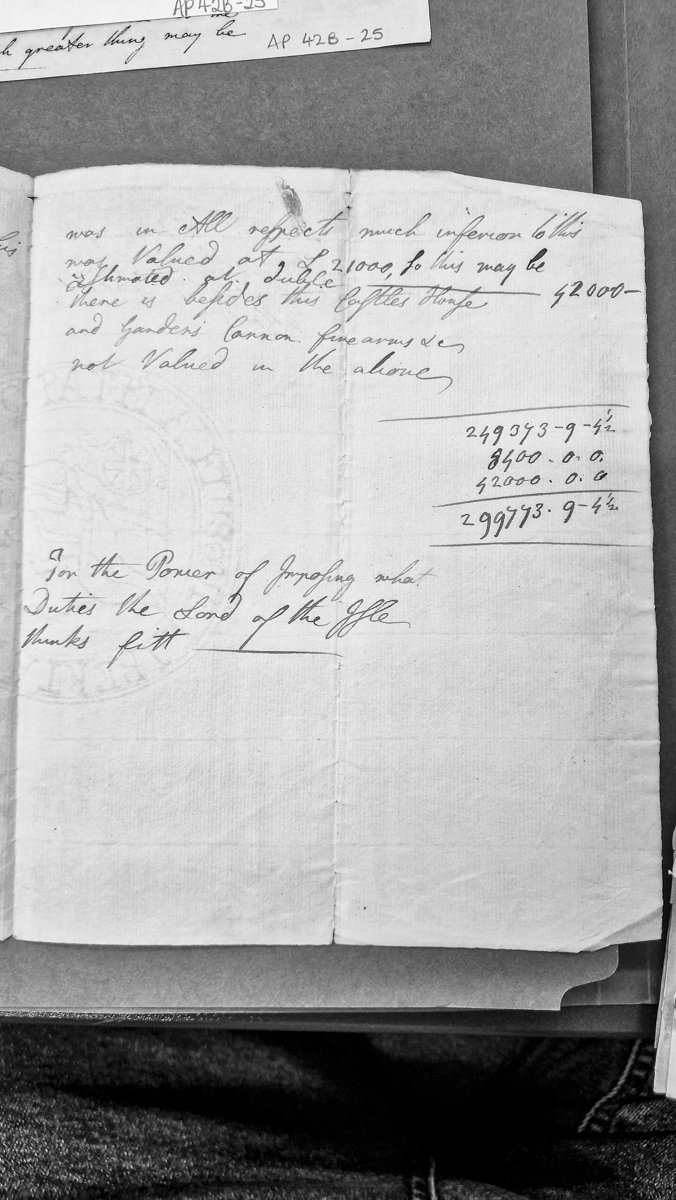 AP 42B-25
me
h greater thing may be
AP 42B-25
was in All respects much inferior to this
was Valued at £ 21000, so this may be
Estimated at duble 42000-
there is besides this Castles House
and Gardens Cannon fire arms &c
not Valued in the above
249373-9-4½
8400.0.0.
42000.0.0
299773.9-4½
For the Power of Imposing what
Duties the Lord of the Isle
thinks fitt